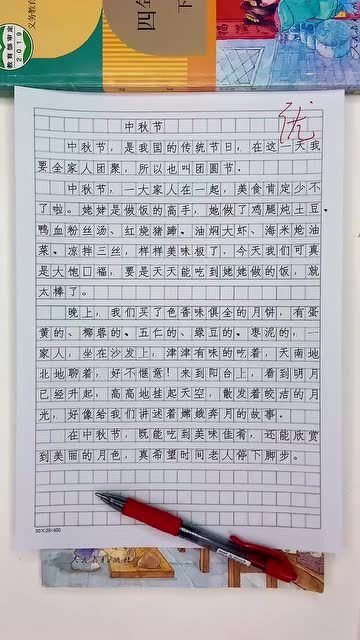 义务教育
教育部审定
2019
四年
下
优
中秋节
中秋节，是我国的传统节日，在这一天我
要全家人团聚，所以也叫团圆节。
中秋节，一大家人在一起，美食肯定少不
了啦。姥姥是做饭的高手，她做了鸡腿炖土豆、
鸭血粉丝汤、红烧猪蹄、油焖大虾、海米炝油
菜、凉拌三丝，样样美味极了、今天我们可真
是大饱口福，要是天天能吃到姥姥做的饭，就
太棒了。
晚上，我们买了色香味俱全的月饼，有蛋
黄的、椰蓉的、五仁的、绿豆的、枣泥的，一
家人，坐在沙发上，津津有味的吃着，天南地
北地聊着，好不惬意！来到阳台上，看到明月
已经升起，高高地挂起天空，散发着皎洁的月
光，好像给我们讲述着嫦娥奔月的故事。
在中秋节，既能吃到美味佳肴，还能欣赏
到美丽的月色，真希望时间老人停下脚步。
20×20=400
人民教育出版社